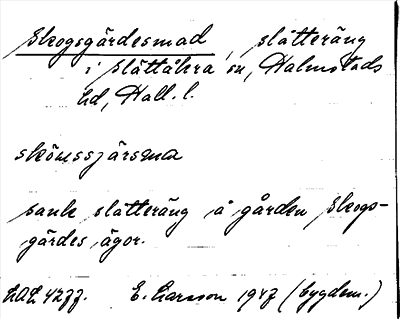 Skogsgärdesmad, slåtteräng
i Slättåkra sn, Halmstads
hd, Hall. l.
skö̀ussjärsma
sank slåtteräng å gården Skogs-
gärdes ägor.
E. Larsson 1947 (bygdem.)